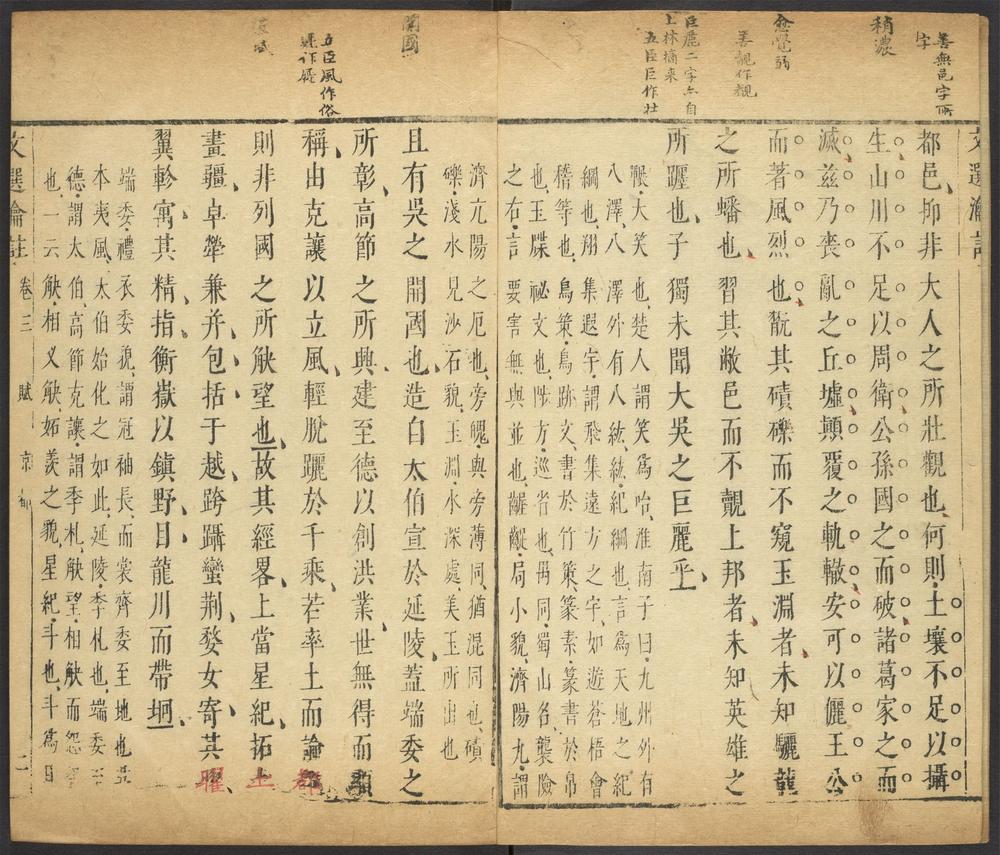 善無邑字所
字
稍濃
愈覺弱
善靚作觀
巨麗二字亦自
上林摘來
五臣巨作壮
都邑抑非大人之所壯觀也何則土壤不足以攝
生山川不足以周衛公孫國之而破諸葛家之而
滅兹乃喪亂之丘墟顛覆之軌轍安可以儷王公
而著風烈也翫其磧礫而不窺玉淵者未知驪龍
之所蟠也習其敝邑而不覿上邦者未知英雄之
所躔也子獨未聞大吳之巨麗乎
冁大笑也楚人謂笑爲咍淮南子曰九州外有
八澤八澤外有八紘紘紀綱也言爲天地之紀
綱也翔集遐宇謂飛集遠方之宇如遊蒼梧會
稽等也鳥策鳥跡文書於竹策篆素篆書於帛
也玉牒祕文也陟方巡省也冄同蜀山名襲險
之右言要害無與並也齷齪局小貌濟陽九謂
開國
五臣風作俗
躧作屣
濟亢陽之厄也旁魄與旁薄同猶混同也磧
礫淺水見沙石貌玉淵水深處美玉所出也
且有吳之開國也造自太伯宣於延陵蓋端委之
所彰高節之所興建至德以創洪業世無得而顯
稱由克讓以立風輕脫躧於千乘若率土而論都
則非列國之所觖望也故其經畧上當星紀拓土
畫疆卓犖兼并包括于越跨躡蠻荆婺女寄其曜
翼軫寓其精指衡嶽以鎮野目龍川而帶坰
端委禮衣委貌謂冠袖長而裳齊委至地也
本夷風太伯始化之如此延陵季札也端委
德謂太伯高節克讓謂季札觖望相觖而怨
也一云觖相义觖妬羨之貌星紀斗也斗爲
都
土
曜
文選瀹註
卷三
賦
京都
二